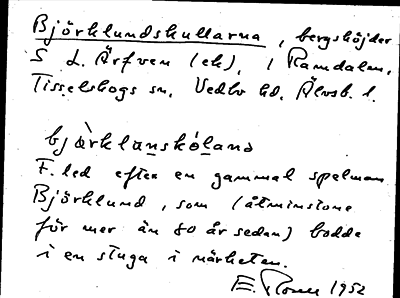 Björklundskullarna, bergshöjder
S L. Ärfven (ek), i Ramdalen,
Tisselskogs sn, Vedbo hd, Älvsb. l.
bjӧ̀rklanskólană
F. led efter en gammal spelman
Björklund, som (åtminstone
för mer än 80 år sedan) bodde
i en stuga i närheten.
E. 1952